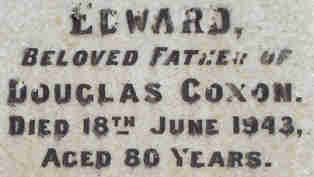 EDWARD,
BELOVED FATHER OF
DOUGLAS COXON.
DIED 18TH JUNE 1943,
AGED 80 YEARS.